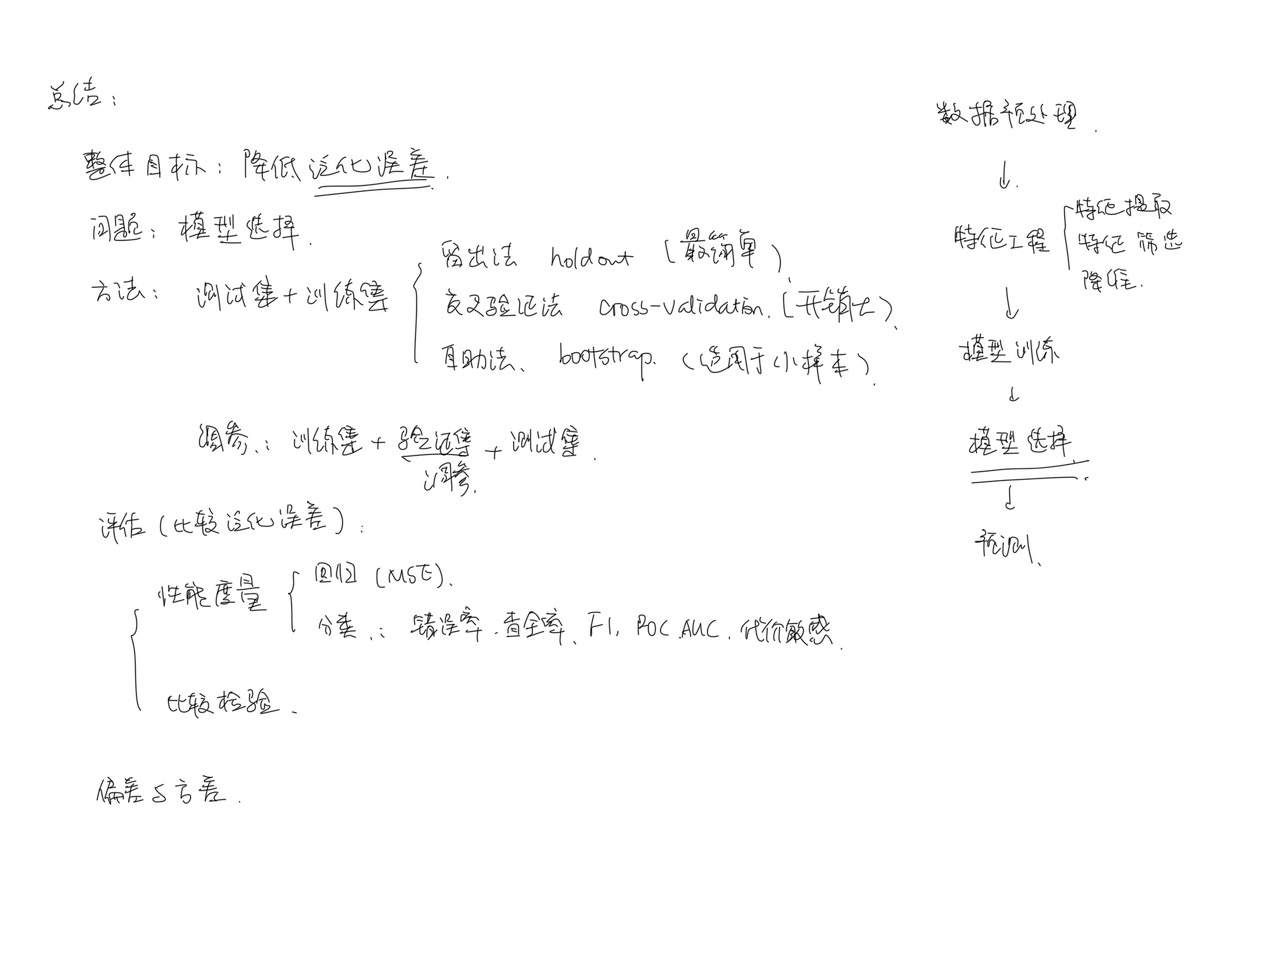 总结：
整体目标：降低泛化误差.
问题：模型选择.
方法：测试集+训练集
留出法 holdout (最简单)、
交叉验证法 cross-validation. (开销大)、
自助法、bootstrap. (适用于小样本).
调参.：训练集+验证集+测试集.
调参.
评估(比较泛化误差).
性能度量
回归 (MSE).
分类.：错误率.查全率、F1, ROC.AUC. 代价敏感.
比较检验.
偏差与方差.
数据预处理.
↓.
特征工程
特征提取
特征筛选
降维.
↓
模型训练
↓
模型选择.
↓
预测.